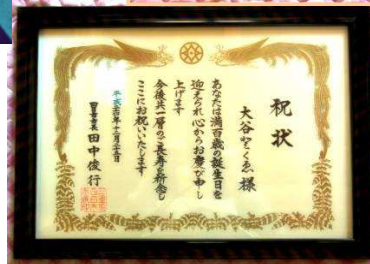 祝状
大谷きくゑ 様
あなたは満百歳の誕生日を
迎えられ心からお慶び申し
上げます
今後共一層のご長寿を祈念し
ここにお祝いいたします
平成二十四年十二月二十五日
四日市市長 田中俊行